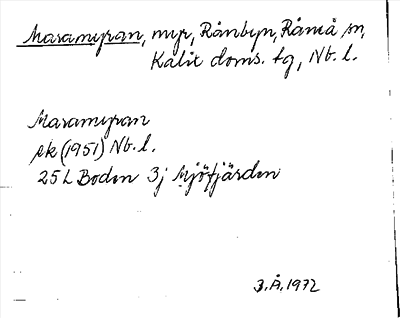 Maramyran, myr, Rånbyn, Råneå sn,
Kalix doms. tg, Nb. l.
Maramyran
ek (1951) Nb. l.
25 L Boden 3j Mjöfjärden
3.Å. 1972